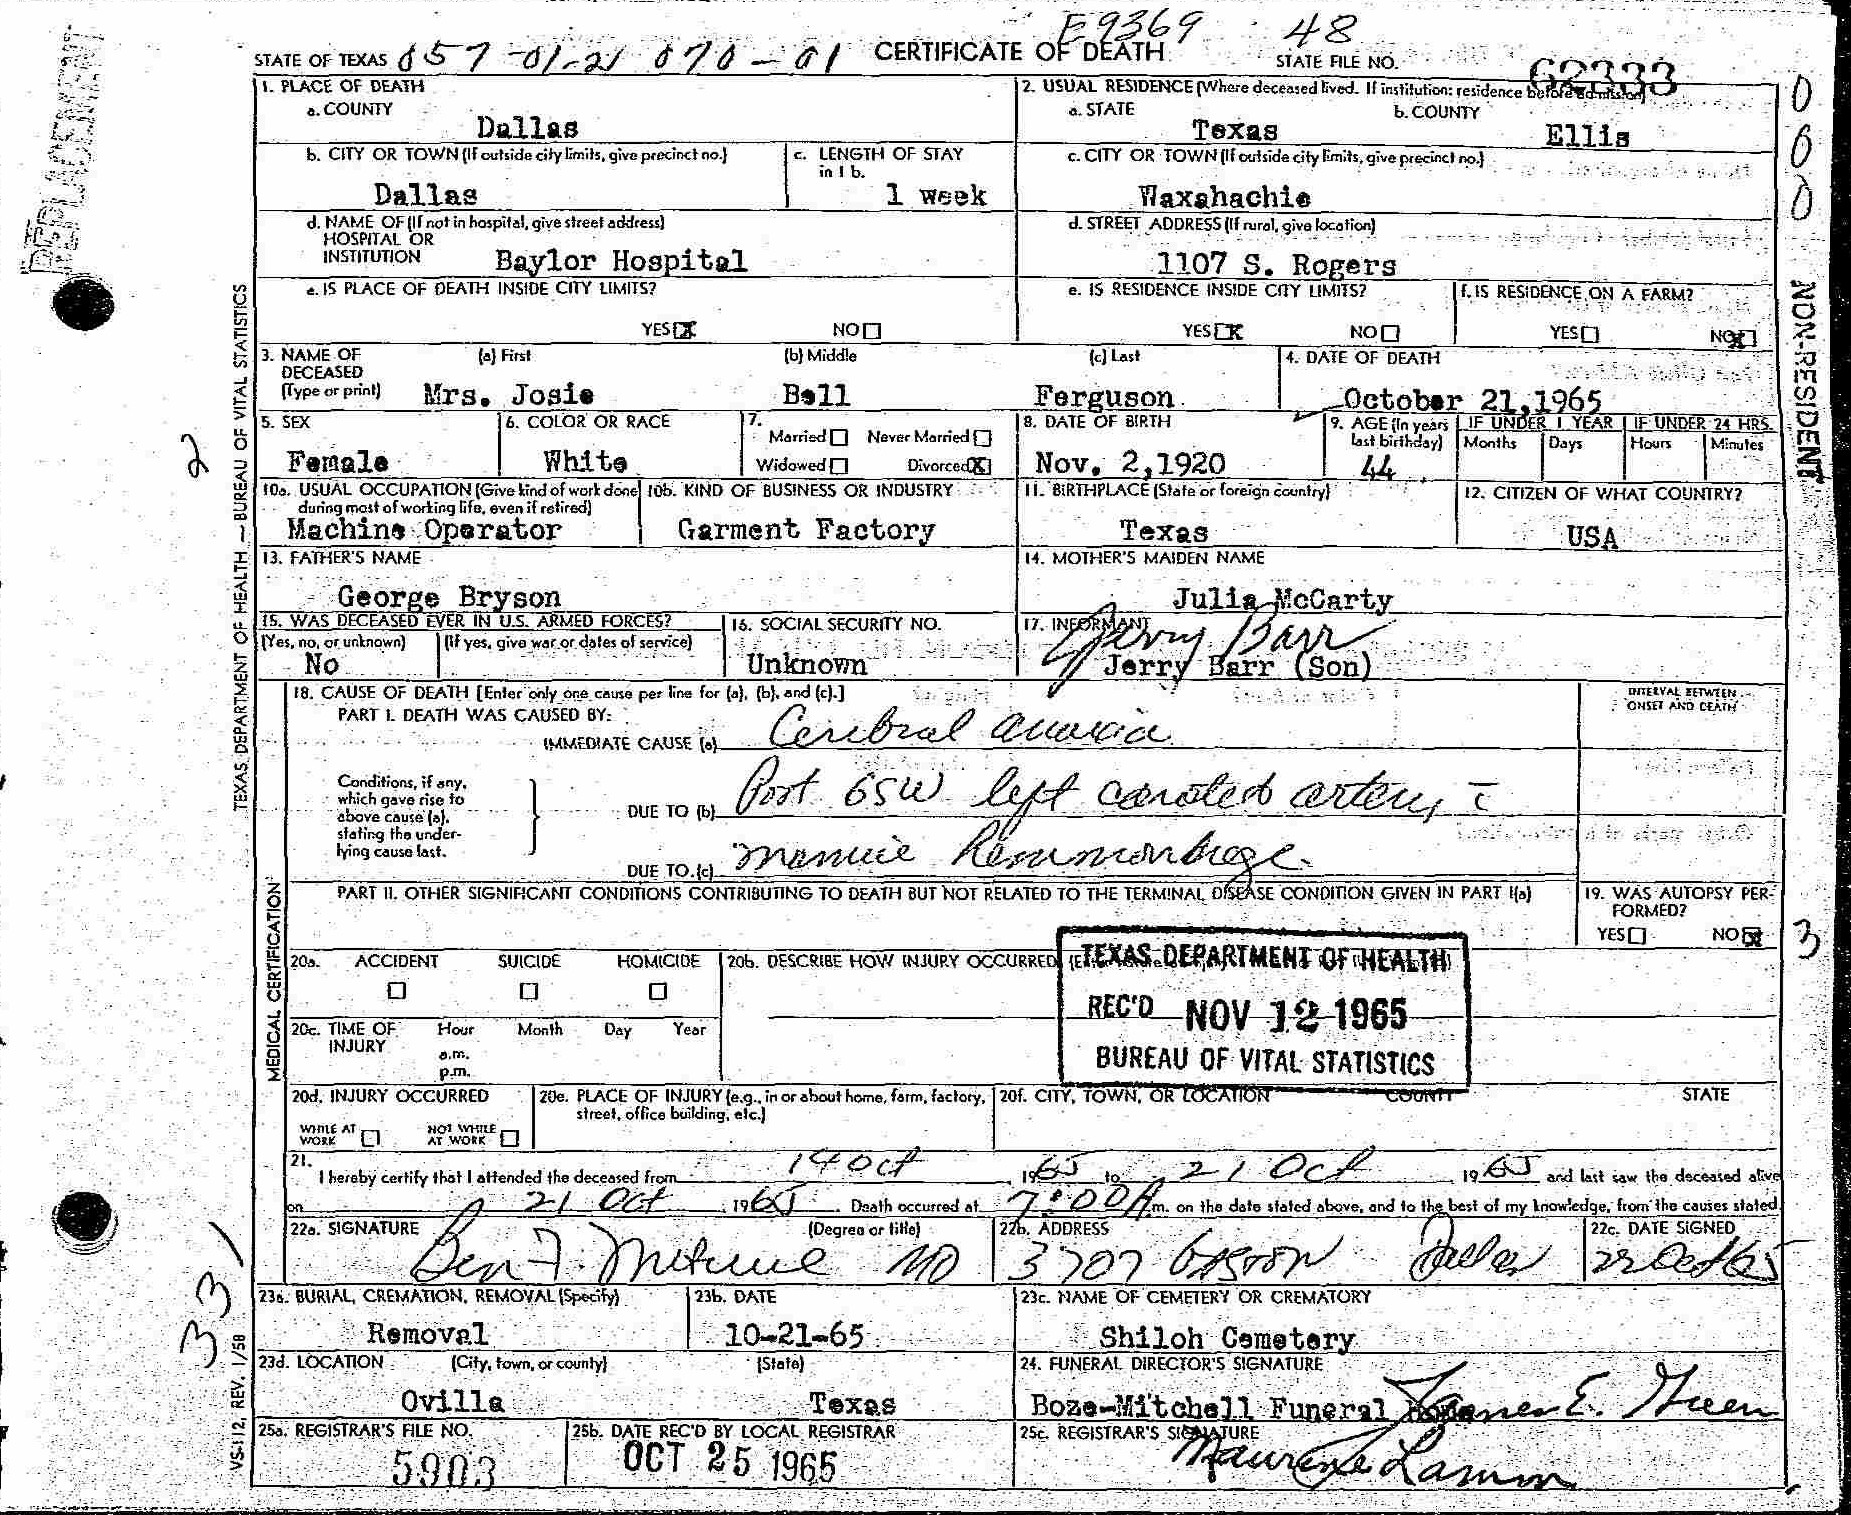 E9369 48
STATE OF TEXAS 057-01-21 070-01 CERTIFICATE OF DEATH STATE FILE NO. 62333
1. PLACE OF DEATH
a. COUNTY
Dallas
2. USUAL RESIDENCE (Where deceased lived. If institution: residence before admission)
a. STATE b. COUNTY
Texas Ellis
b. CITY OR TOWN (If outside city limits, give precinct no.)
Dallas
c. LENGTH OF STAY in 1 b.
1 week
c. CITY OR TOWN (If outside city limits, give precinct no.)
Waxahachie
d. NAME OF (If not in hospital, give street address)
HOSPITAL OR
INSTITUTION Baylor Hospital
d. STREET ADDRESS (If rural, give location)
1107 S. Rogers
e. IS PLACE OF DEATH INSIDE CITY LIMITS?
YES X NO
e. IS RESIDENCE INSIDE CITY LIMITS?
YES X NO
f. IS RESIDENCE ON A FARM?
YES NO X
3. NAME OF DECEASED (Type or print)
(a) First (b) Middle (c) Last
Mrs. Josie Bell Ferguson
4. DATE OF DEATH
October 21,1965
5. SEX
Female
6. COLOR OR RACE
White
7.
Married Never Married
Widowed Divorced X
8. DATE OF BIRTH
Nov. 2,1920
9. AGE (In years last birthday)
44
IF UNDER 1 YEAR IF UNDER 24 HRS.
Months Days Hours Minutes
10a. USUAL OCCUPATION (Give kind of work done during most of working life, even if retired)
Machine Operator
10b. KIND OF BUSINESS OR INDUSTRY
Garment Factory
11. BIRTHPLACE (State or foreign country)
Texas
12. CITIZEN OF WHAT COUNTRY?
USA
13. FATHER'S NAME
George Bryson
14. MOTHER'S MAIDEN NAME
Julia McCarty
15. WAS DECEASED EVER IN U.S. ARMED FORCES?
(Yes, no, or unknown) (If yes, give war or dates of service)
No
16. SOCIAL SECURITY NO.
Unknown
17. INFORMANT
Jerry Barr
Jerry Barr (Son)
18. CAUSE OF DEATH [Enter only one cause per line for (a), (b), and (c).]
INTERVAL BETWEEN ONSET AND DEATH
PART I. DEATH WAS CAUSED BY:
IMMEDIATE CAUSE (a) Cerebral anoxia
Conditions, if any, which gave rise to above cause (a), stating the underlying cause last.
DUE TO (b) Post GSW left carotid artery c̄
DUE TO (c) massive hemmorhage
PART II. OTHER SIGNIFICANT CONDITIONS CONTRIBUTING TO DEATH BUT NOT RELATED TO THE TERMINAL DISEASE CONDITION GIVEN IN PART I(a)
19. WAS AUTOPSY PERFORMED?
YES NO X
20a. ACCIDENT SUICIDE HOMICIDE
20b. DESCRIBE HOW INJURY OCCURRED
TEXAS DEPARTMENT OF HEALTH
REC'D NOV 12 1965
BUREAU OF VITAL STATISTICS
20c. TIME OF INJURY
Hour Month Day Year
a.m.
p.m.
20d. INJURY OCCURRED
WHILE AT WORK NOT WHILE AT WORK
20e. PLACE OF INJURY (e.g., in or about home, farm, factory, street, office building, etc.)
20f. CITY, TOWN, OR LOCATION COUNTY STATE
21.
I hereby certify that I attended the deceased from 14 Oct 1965 to 21 Oct 1965 and last saw the deceased alive
on 21 Oct 1965. Death occurred at 7:00A.m. on the date stated above, and to the best of my knowledge, from the causes stated.
22a. SIGNATURE (Degree or title)
Ben F. MD
22b. ADDRESS
3707 GASTON Dallas
22c. DATE SIGNED
22 Oct 65
23a. BURIAL, CREMATION, REMOVAL (Specify)
Removal
23b. DATE
10-21-65
23c. NAME OF CEMETERY OR CREMATORY
Shiloh Cemetery
23d. LOCATION (City, town, or county) (State)
Ovilla Texas
24. FUNERAL DIRECTOR'S SIGNATURE
Boze-Mitchell Funeral Home James E. Green
25a. REGISTRAR'S FILE NO.
5903
25b. DATE REC'D BY LOCAL REGISTRAR
OCT 25 1965
25c. REGISTRAR'S SIGNATURE
TEXAS DEPARTMENT OF HEALTH — BUREAU OF VITAL STATISTICS
MEDICAL CERTIFICATION
VS-112, REV. 1/58
REPLACEMENT
NON-RESIDENT
000
2
3
331